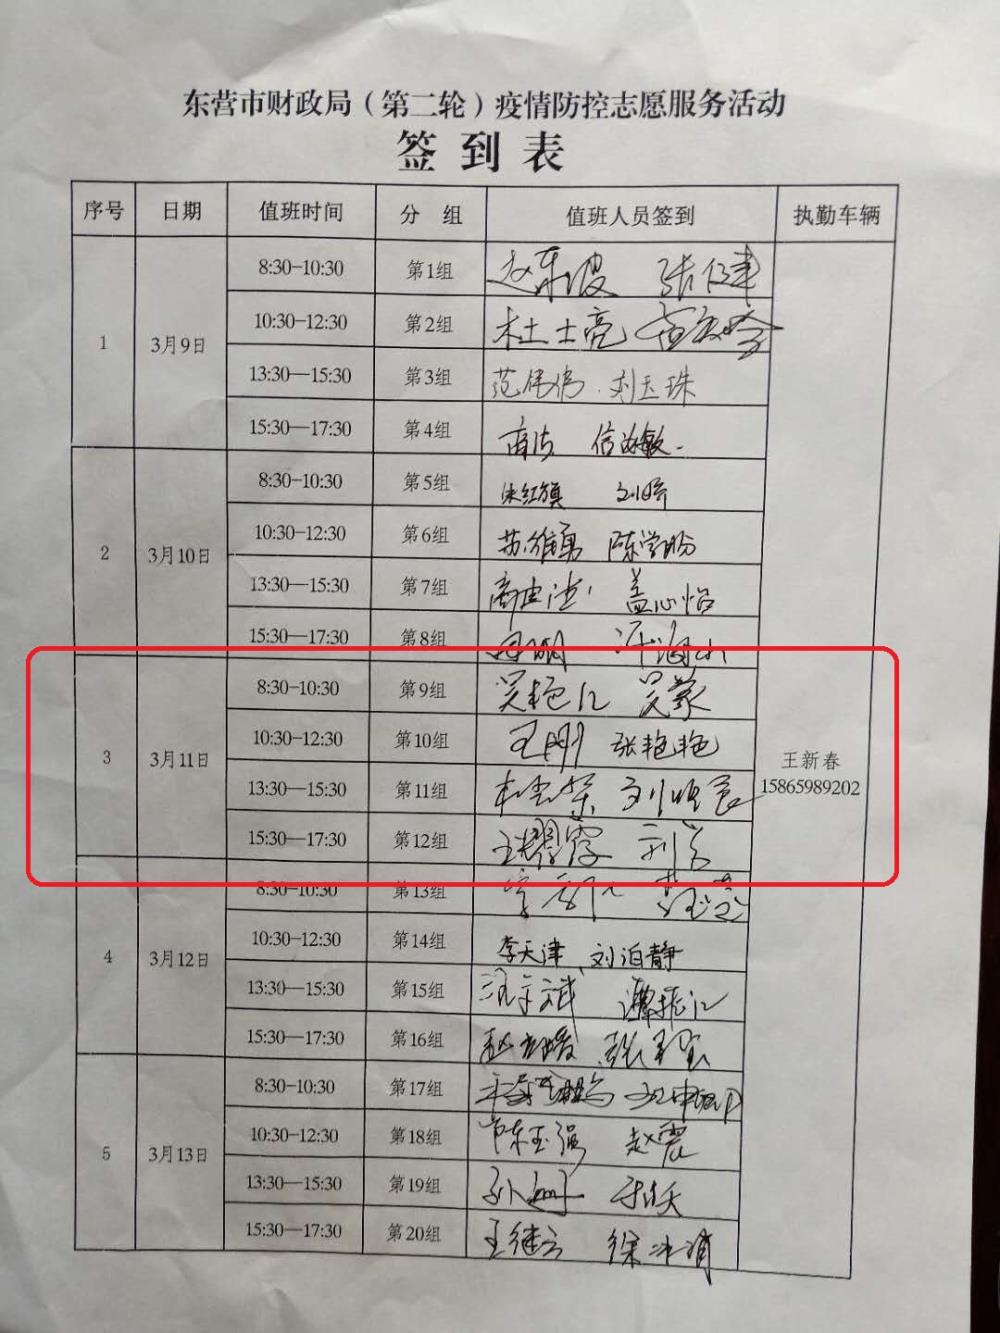 东营市财政局（第二轮）疫情防控志愿服务活动
签到表
序号 日期 值班时间 分组 值班人员签到 执勤车辆
1 3月9日
8:30-10:30 第1组 赵东波 张仁聿
10:30-12:30 第2组 杜士亮
13:30—15:30 第3组 范伟伟 刘玉珠
15:30—17:30 第4组 商洁 信海敏
2 3月10日
8:30-10:30 第5组 宋红旗 刘晓
10:30-12:30 第6组 苏维勇 陈学盼
13:30—15:30 第7组 商建波 盖心怡
15:30—17:30 第8组
3 3月11日
8:30-10:30 第9组 吴艳红 吴蒙
10:30-12:30 第10组 王刚 张艳艳
13:30—15:30 第11组
15:30—17:30 第12组 王耀霞
王新春
15865989202
4 3月12日
8:30-10:30 第13组
10:30-12:30 第14组 李天津、刘泊静
13:30—15:30 第15组 谭振江
15:30—17:30 第16组
5 3月13日
8:30-10:30 第17组
10:30-12:30 第18组 陈玉强 赵震
13:30—15:30 第19组
15:30—17:30 第20组 王继云 徐冰清